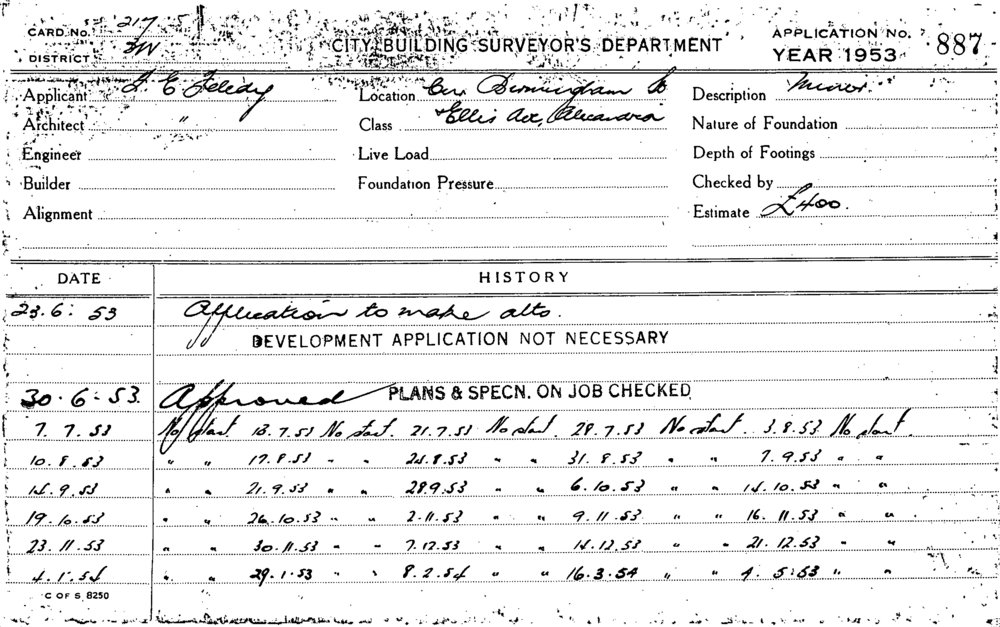 CARD NO. 217 5
DISTRICT 3W
CITY BUILDING SURVEYOR'S DEPARTMENT
APPLICATION NO. 887
YEAR 1953
Applicant J. E. Feledy Location Cnr. Birmingham St Description Minor.
Architect " Class Ellis Ave, Alexandria Nature of Foundation
Engineer Live Load Depth of Footings
Builder Foundation Pressure Checked by
Alignment Estimate £400.
DATE HISTORY
23.6.53 Application to make alts.
DEVELOPMENT APPLICATION NOT NECESSARY
30.6.53. Approved PLANS & SPECN. ON JOB CHECKED
7.7.53 No start. 13.7.53 No start. 21.7.53 No start. 28.7.53 No start. 3.8.53 No start.
10.8.53 " " 17.8.53 " " 24.8.53 " " 31.8.53 " " 7.9.53 " "
14.9.53 " " 21.9.53 " " 28.9.53 " " 6.10.53 " " 14.10.53 " "
19.10.53 " " 26.10.53 " " 2.11.53 " " 9.11.53 " " 16.11.53 " "
23.11.53 " " 30.11.53 " " 7.12.53 " " 14.12.53 " " 21.12.53 " "
4.1.54 " " 29.1.53 " " 8.2.54 " " 16.3.54 " " 4.5.53 " "
C OF S 8250